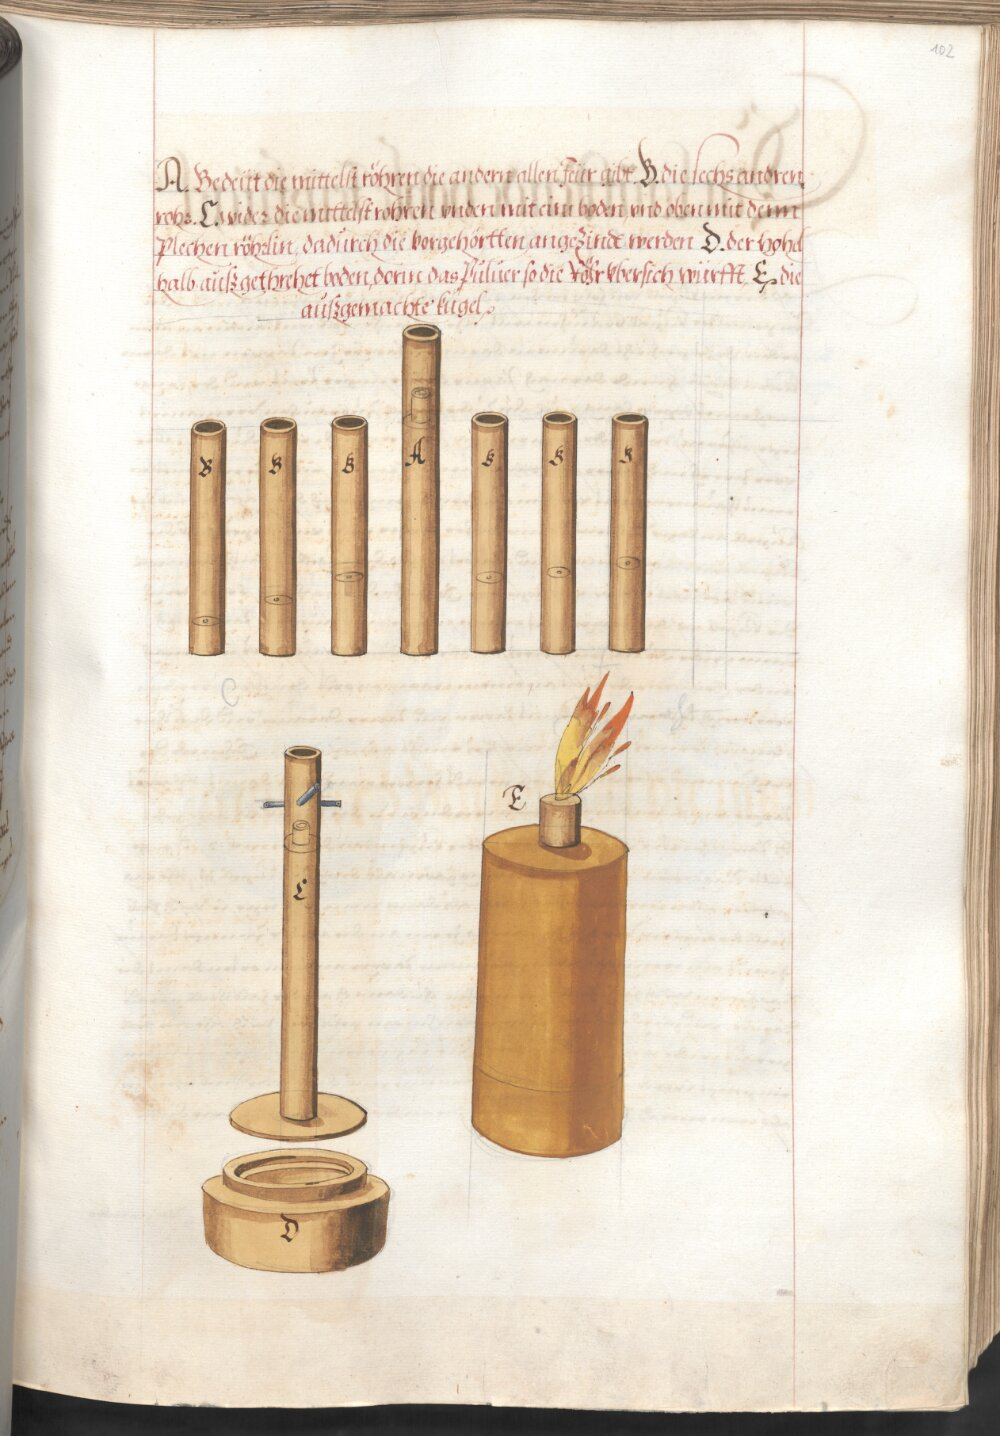 102
A. Bedeütt die mittelst röhren die andern allen feür gibt. B. die sechs andren
rohr. C. wider die mittelst rohren vnden mit eim boden vnd oben mit denn
Plechen röhrlin, dadurch die vorgehörtten angezindt werden D. der hohl
halb außgethrehet boden, dorin das Puluer so die Röhr vbersich würfft, E. die
außgemachte kugel.
B B B A B B B
E
C
D